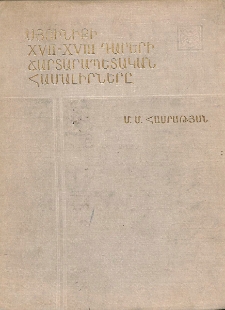 ՍՅՈՒՆԻՔԻ
XVII-XVIII ԴԱՐԵՐԻ
ՃԱՐՏԱՐԱՊԵՏԱԿԱՆ
ՀԱՄԱԼԻՐՆԵՐԸ
Մ. Մ. ՀԱՍՐԱԹՅԱՆ